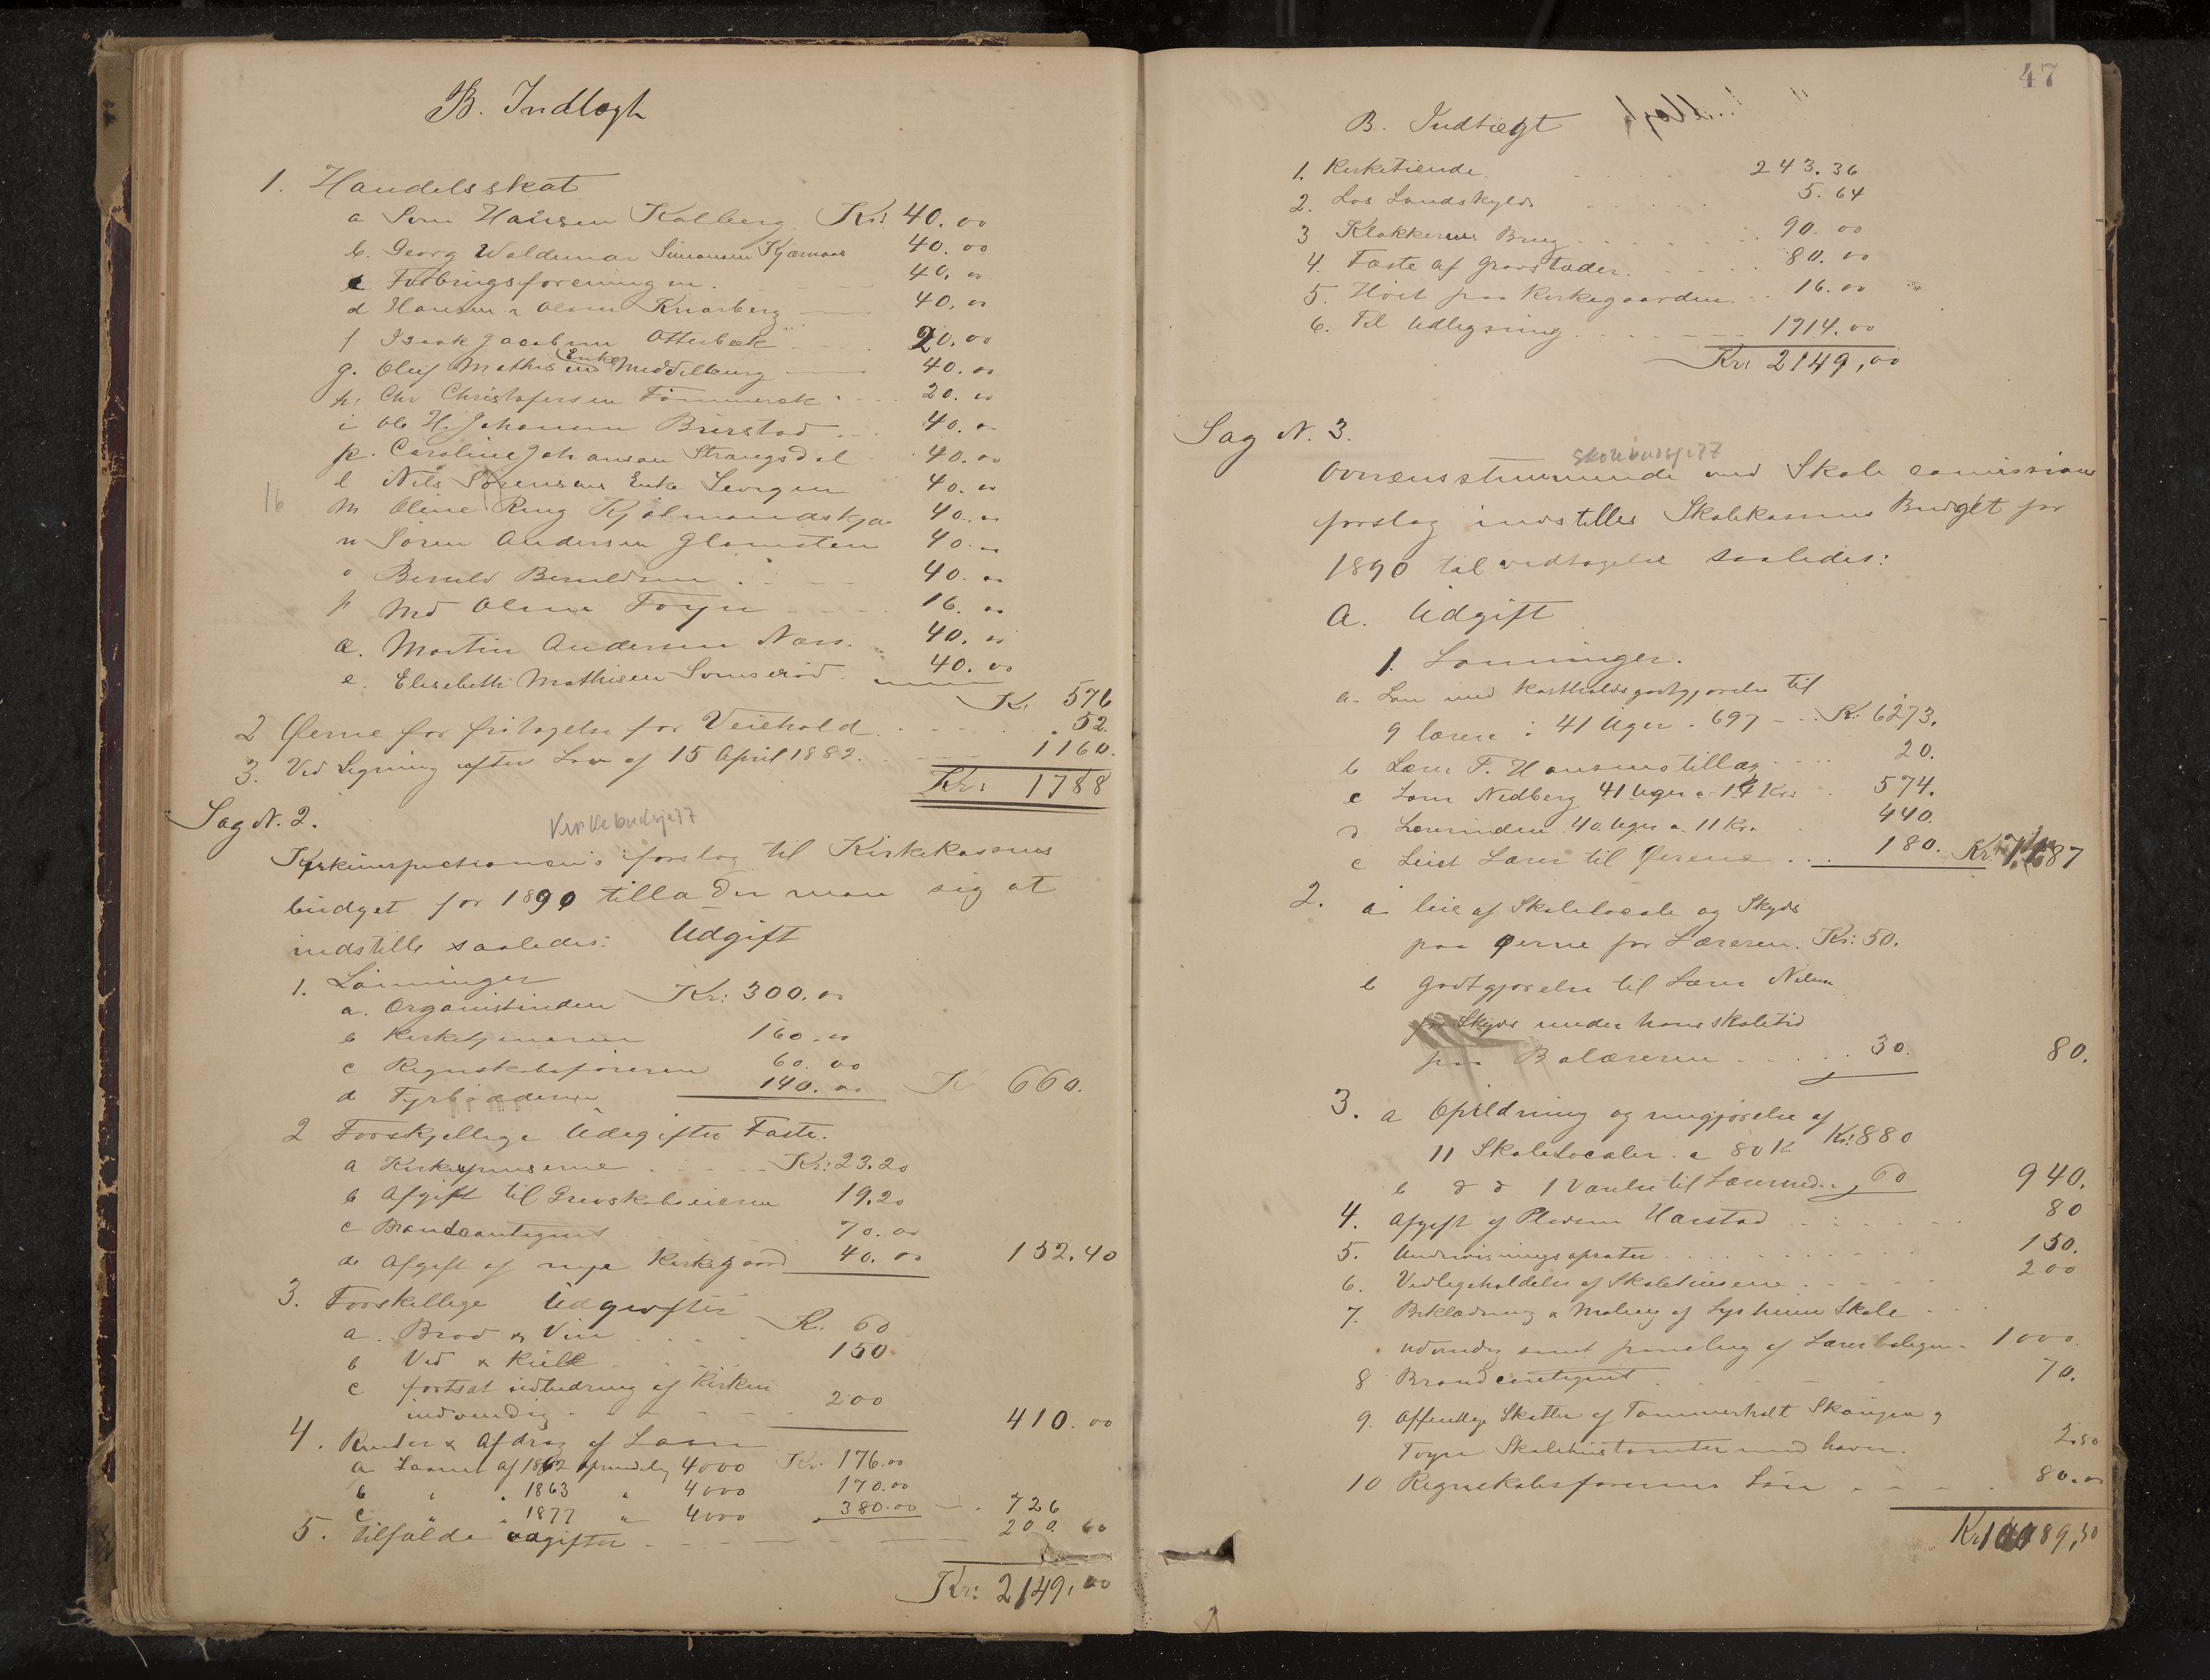 B. Indtægt
1. Handelsskat
a Sven Hansen Kolberg Kr: 40.00
b. Georg Waldemar Simonsen Kjærnaas 40.00
c Forbrugsforeningen. 40.00
d Hansen & Olsen Knarberg 40.00
f Isaak Jacobsen Otterbæk 20.00
g. Oluf Mathisens Enke Middelborg 40.00
h. Chr Christofersen Tømmerek 20.00
i Ole H. Johansen Buerstad 40.00
k. Caroline Johansen Strengsdal 40.00
l Nils Sørensens Enke Leirgen 40.00
16 m Oline Ring 40.00
n Søren Andersen Glomsten 40.00
o Beruld Beruldsen 40.00
p Md Olena Foyn 16.00
Martin Andersen Næss. 40.00
Elisebeth Mathisen Sunserød 40.00
Kr 576
2 Øerne for fritagelse for Veiehold 52.
3. Ved Ligning efter Lov af 15 April 1882. 1160.
Kr: 1788
Sag N. 2.
Kirkebudsjett
Kirkeinspectionen's forslag til Kirkekassens
budget for 1890 tillader man sig at
indstille saaledes: Udgift
1. Lønninger
a. Organistinden Kr: 300.00
b Kirketjeneren 160.00
c Regnskabsføreren 60.00
d Fyrbøderen 140.00 Kr 660.
2 Forskjellige Udgifter Faste.
a Kirkepuserne Kr: 23.20
b Afgift til Grevskabseieren 19.20
c Brandcontigent 70.00
d. Afgift af nye Kirkegaard 40.00 152.40
3. Forskellige Udgifter
a. Brød & Vin Kr. 60
b Ved & Kull 150
c fortsat udbedring af Kirken
indvendig 200
410.00
4. Renter & Afdrag af Laan
a Laanet af 1862 oprindelig 4000 Kr. 176.00
b " " 1863 " 4000 170.00
c " " 1877 " 4000 380.00 726
5. tilfælde udgifter 200.60
Kr: 2149,00
47
B. Indtægt
1. Kirketiende 243.36
2. Løs Landskyld 5.64
3 Klokkernes Brug 90.00
4. Fæste af Gravstæder. 80.00
5. Høiet paa Kirkegaarden 16.00
6. Til Udligning 1714.00
Kr: 2149,00
Sag N. 3.
Skolebudsjett
Overensstemmende med Skole comissions
forslag indstilles Skolekassens Budget for
1890 til vedtagelse saaledes:
A. Udgift
1. Lønninger.
a. Løn med Kostholdsgodtgjørelse til
9 lærere i 41 Uger - 697 - Kr: 6273.
b Lærer F. Hansens tillæg 20.
c Lærer Nedberg 41 Uger a 14 Kr: 574.
d Lærerinden 40 Uger a 11 Kr. 440.
e Leiet Lærer til Øerene 180. Kr. 7687
2. a leie af Skolelocale og Skyds
paa Øerne for Læreren. Kr: 50.
b Godtgjørelse til Lærer Nilsen
for Skyds under hans skoletid
paa Bolærerne 30. 80.
3. a Opildning og rengjørelse af
11 Skolelocaler a 80 Kr Kr: 880
b d d 1 Værelse til Lærerinden 60 940.
4. Afgift af Pladsen Harstad 80
5. Undervisningsaprater 150.
6. Vedligeholdelse af Skolehusene 200
7. Beklædning & Maling af Lysheim Skole
udvendig samt paneling af Lærerboligen 1000.
8 Brandcontigent 70.
9. Offentlige Skatter af Tømmerholt Skaugen og
Foyn Skolehustomter med havn. 2.50
10 Regnskabsførerens Løn 80.00
Kr 10289,50